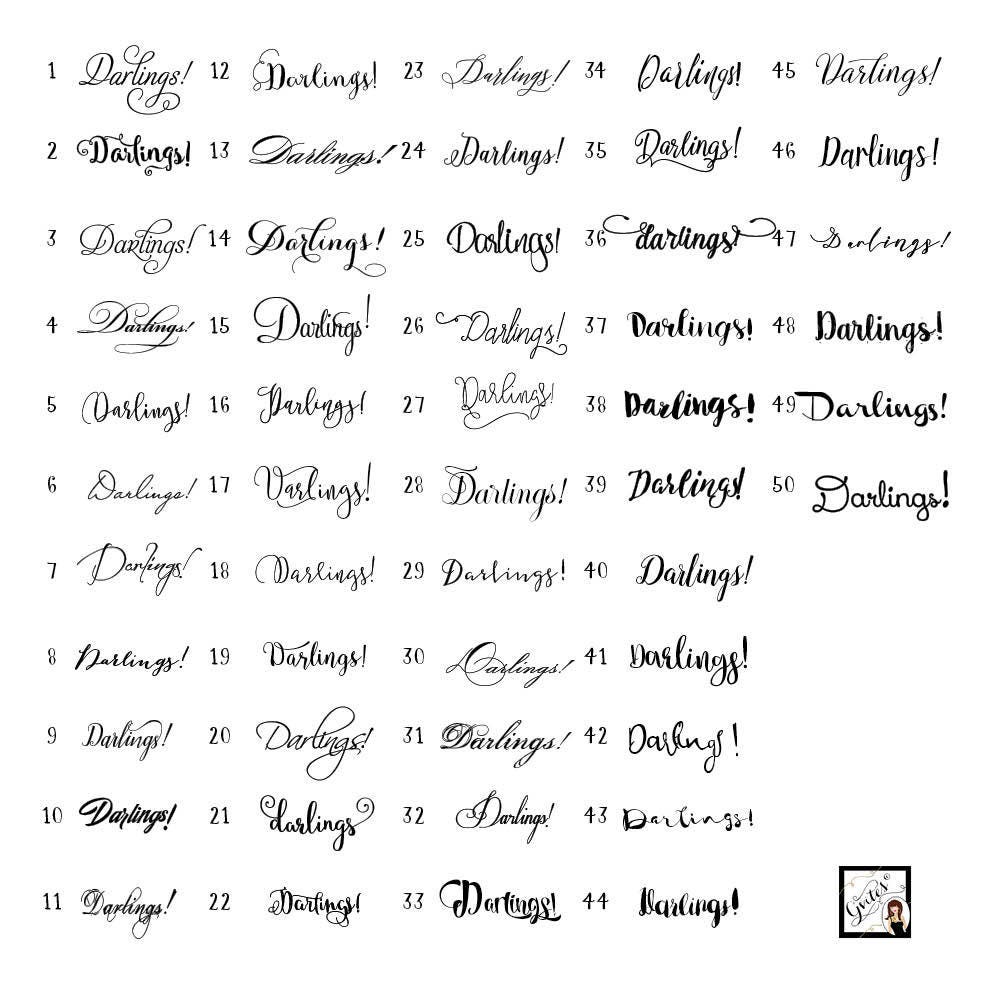 1 Darlings! 12 Darlings! 23 Darlings! 34 Darlings! 45 Darlings!
2 Darlings! 13 Darlings! 24 Darlings! 35 Darlings! 46 Darlings!
3 Darlings! 14 Darlings! 25 Darlings! 36 darlings! 47 Darlings!
4 Darlings! 15 Darlings! 26 Darlings! 37 Darlings! 48 Darlings!
5 Darlings! 16 Darlings! 27 Darlings! 38 Darlings! 49 Darlings!
6 Darlings! 17 Darlings! 28 Darlings! 39 Darlings! 50 Darlings!
7 Darlings! 18 Darlings! 29 Darlings! 40 Darlings!
8 Darlings! 19 Darlings! 30 Darlings! 41 Darlings!
9 Darlings! 20 Darlings! 31 Darlings! 42 Darlings!
10 Darlings! 21 darlings 32 Darlings! 43 Darlings!
11 Darlings! 22 Darlings! 33 Darlings! 44 Darlings!
Gvites®